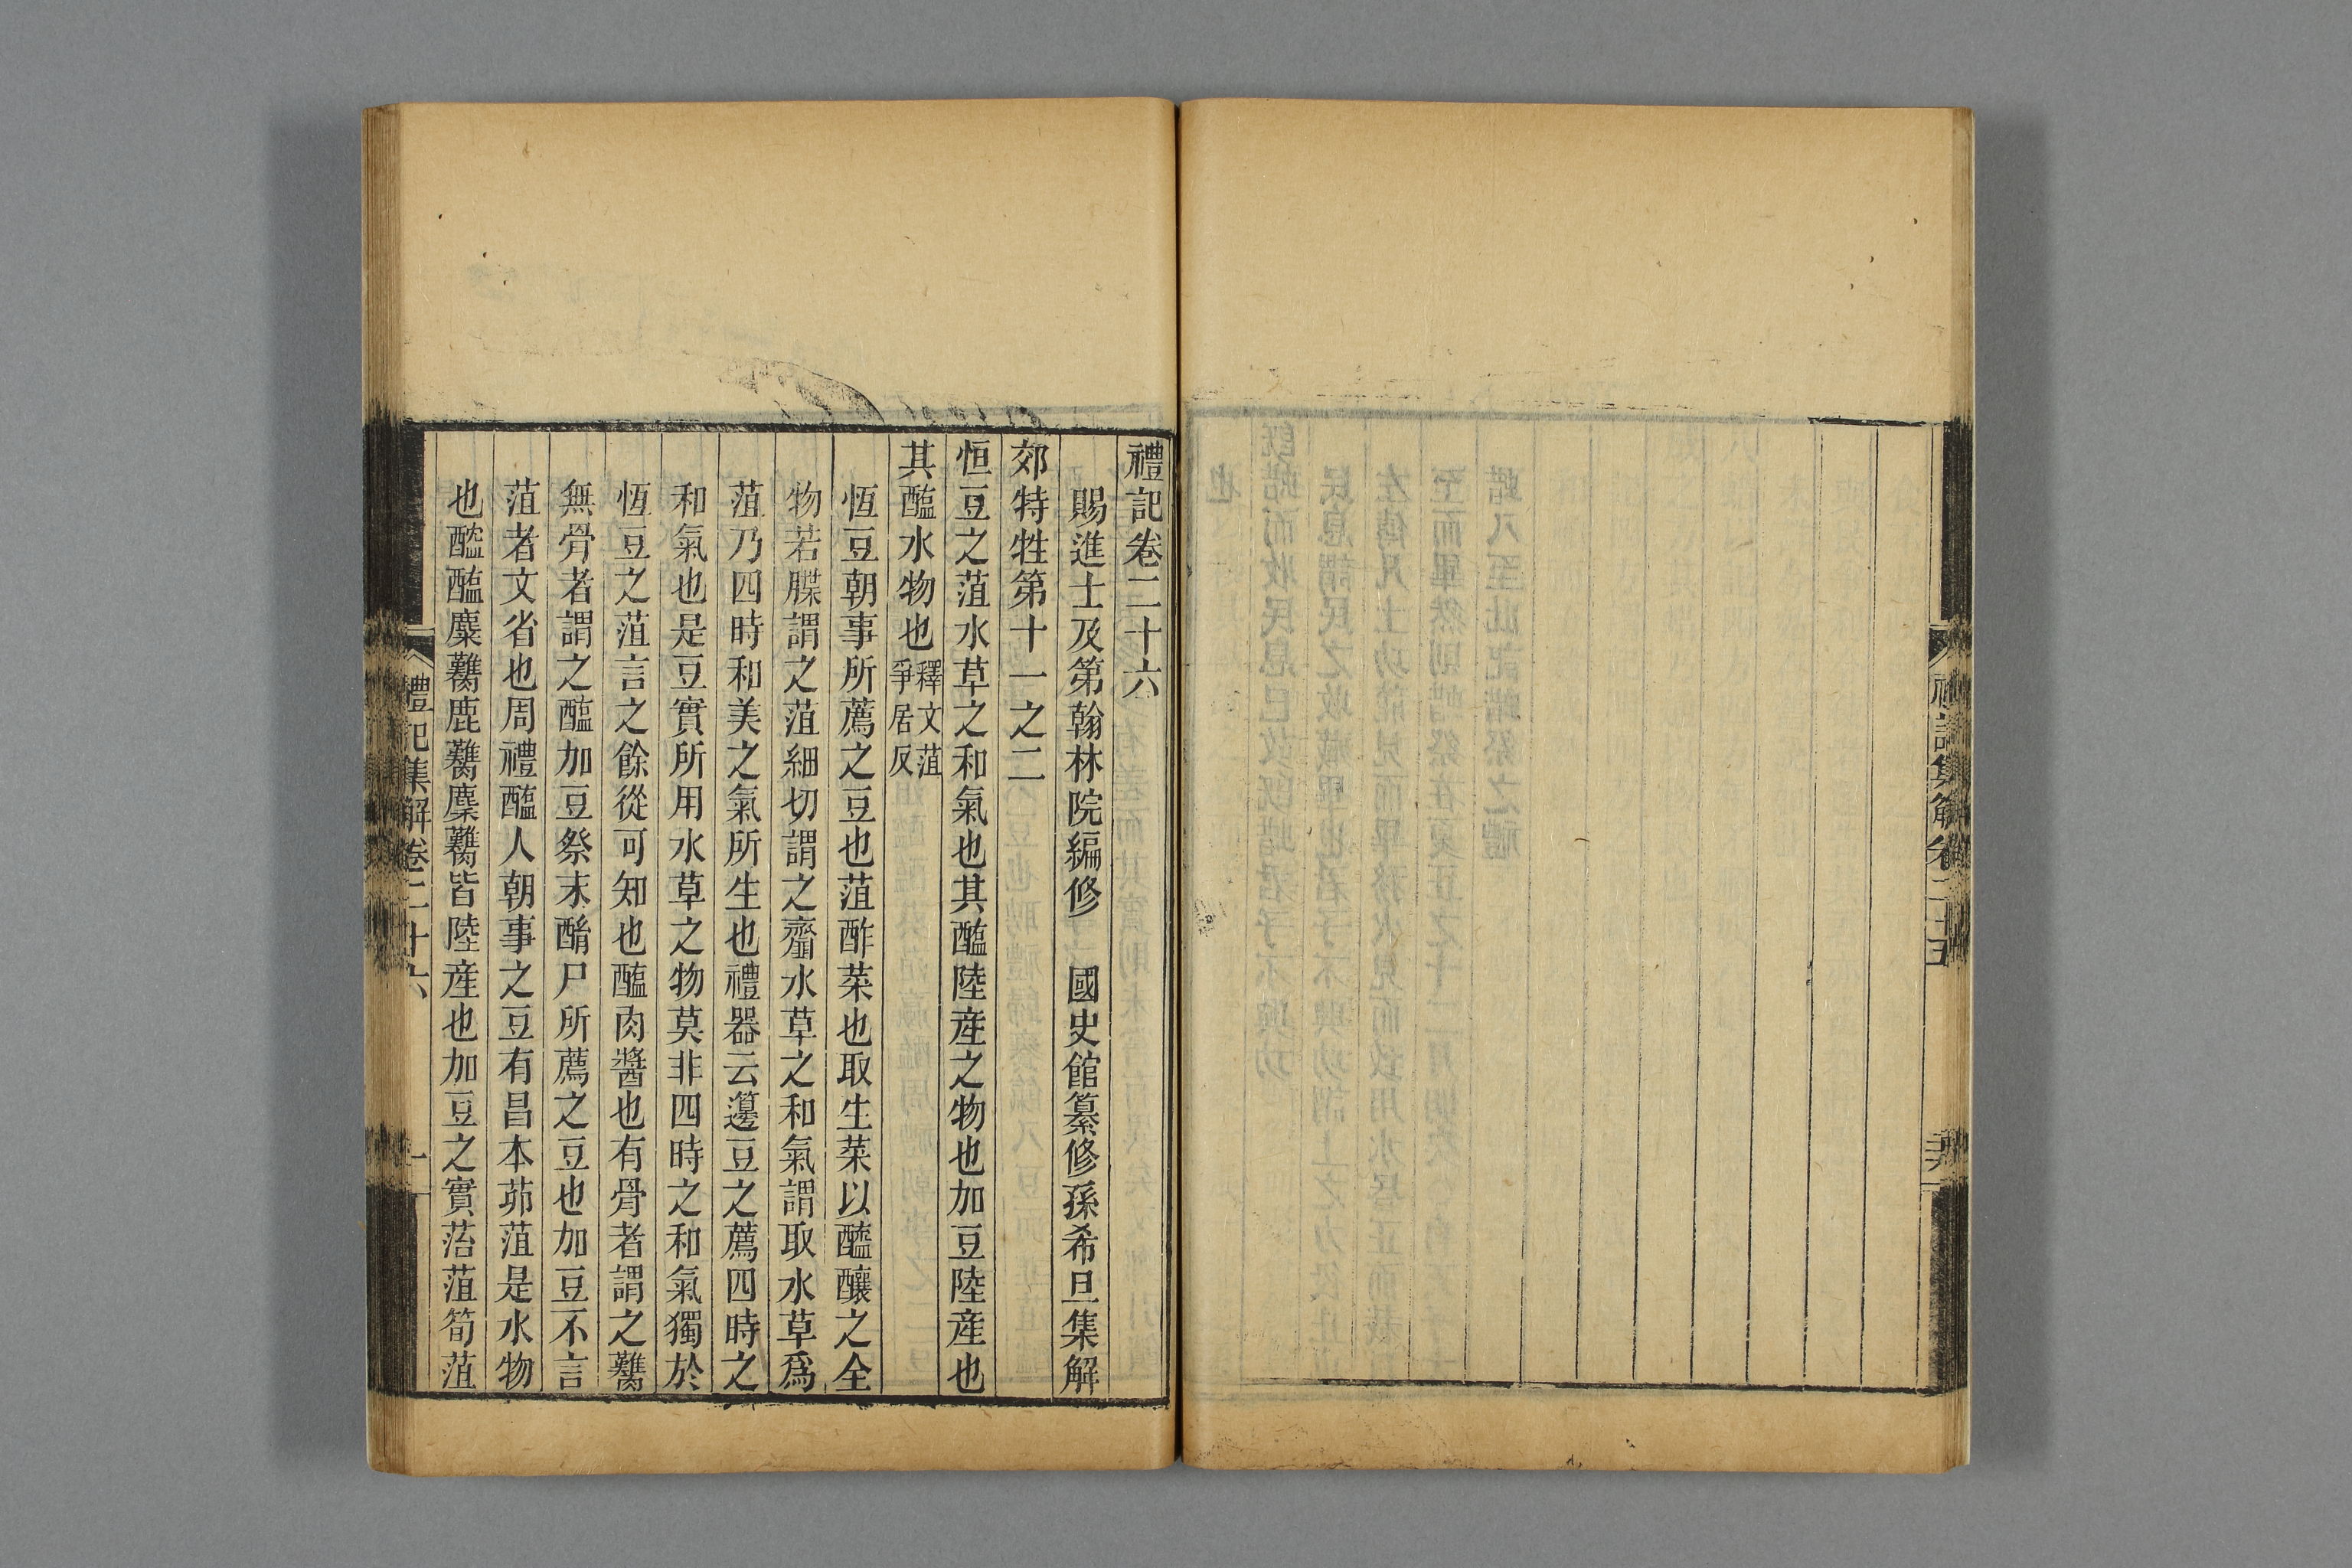 禮記卷二十六
賜進士及第翰林院編修 國史館纂修孫希旦集解
郊特牲第十一之二
恒豆之菹水草之和氣也其醢陸産之物也加豆陸産也
其醢水物也釋文菹爭居反
恆豆朝事所薦之豆也菹酢菜也取生菜以醯釀之全
物若䐑謂之菹細切謂之齏水草之和氣謂取水草爲
菹乃四時和美之氣所生也禮器云籩豆之薦四時之
和氣也是豆實所用水草之物莫非四時之和氣獨於
恆豆之菹言之餘從可知也醢肉醬也有骨者謂之臡
無骨者謂之醢加豆祭末酳尸所薦之豆也加豆不言
菹者文省也周禮醢人朝事之豆有昌本茆菹是水物
也醓醢麋臡鹿臡麇臡皆陸産也加豆之實菭菹筍菹
禮記集解卷二十六
一